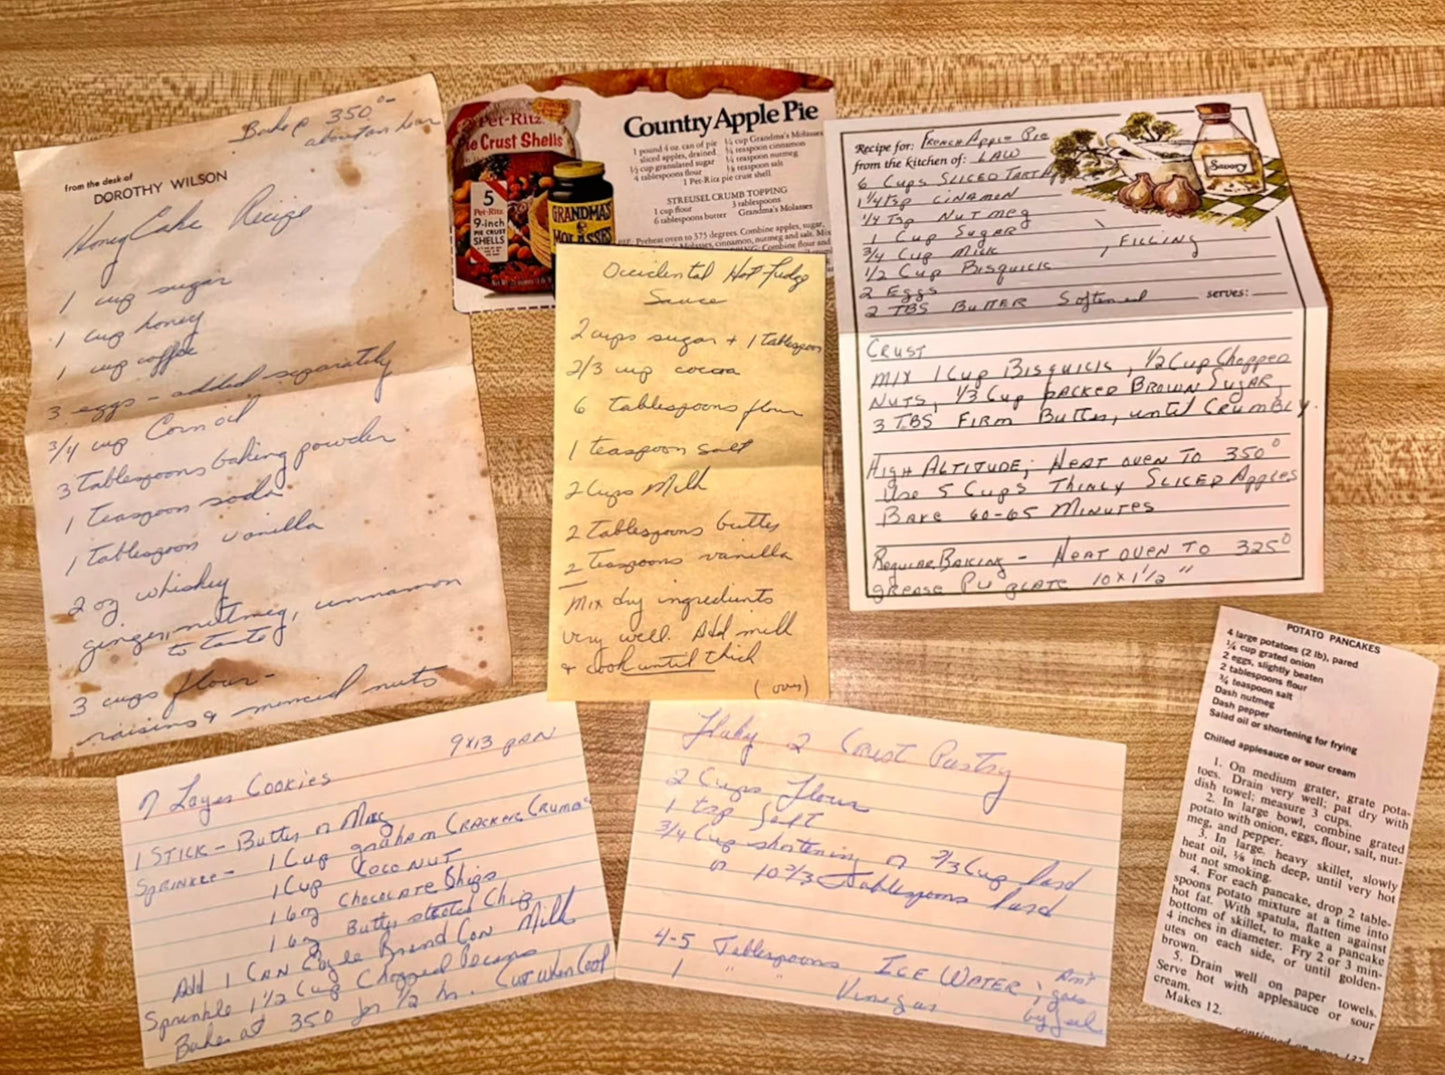 Bake @ 350°-
about an hour
from the desk of
DOROTHY WILSON
Honey Cake Recipe
1 cup sugar
1 cup honey
1 cup coffee
3 eggs - added separately
3/4 cup Corn oil
3 Tablespoons baking powder
1 teaspoon soda
1 Tablespoon vanilla
2 oz whiskey
ginger, nutmeg, cinnamon
to taste
3 cups flour-
raisins & minced nuts
Pet-Ritz
Pie Crust Shells
5
Pet-Ritz
9-inch
PIE CRUST
SHELLS
GRANDMA'S
MOLASSES
Country Apple Pie
1 pound 4 oz. can of pie
sliced apples, drained
1/2 cup granulated sugar
4 tablespoons flour
1/4 cup Grandma's Molasses
teaspoon cinnamon
teaspoon nutmeg
teaspoon salt
1 Pet-Ritz pie crust shell
STREUSEL CRUMB TOPPING
1 cup flour
6 tablespoons butter
3 tablespoons
Grandma's Molasses
Preheat oven to 375 degrees. Combine apples, sugar,
Molasses, cinnamon, nutmeg and salt. Mix
Combine flour and
Occidental Hot Fudge
Sauce
2 cups sugar + 1 tablespoon
2/3 cup cocoa
6 tablespoons flour
1 teaspoon salt
2 Cups Milk
2 Tablespoons butter
2 Teaspoons vanilla
Mix dry ingredients
very well. Add milk
& cook until thick
(over)
Recipe for: French Apple Pie
from the kitchen of: LAW
Savory
6 Cups SLICED TART
1 1/4 Tsp CINAMIN
1/4 Tsp NUTMEG
1 Cup SUGAR
3/4 Cup MILK
1/2 Cup Bisquick
2 Eggs
2 TBS BUTTER Softened
, FILLING
serves:
CRUST
MIX 1 Cup BISQUICK, 1/2 Cup Chopped
NUTS, 1/3 Cup PACKED BROWN SUGAR,
3 TBS FIRM Butter, until CRUMBLY.
HIGH ALTITUDE; HEAT OVEN TO 350°
Use 5 Cups THINLY SLICED Apples
BAKE 60-65 MINUTES
Regular BAKING - HEAT OVEN TO 325°
grease PIE PLATE 10 x 1 1/2"
9x13 PAN
7 Layer COOKIES
1 STICK - Butter or Marg
SPRINKLE - 1 Cup graham CRACKER CRUMBS
1 Cup COCONUT
1 6oz CHOCOLATE Chips
1 6oz Butter scotch Chips
Add 1 CAN Eagle Brand Con Milk
Sprinkle 1 1/2 Cup Chopped Pecans
Bake at 350 for 1/2 hr. Cut when Cool
Flaky 2 Crust Pastry
2 Cups flour
1 tsp Salt
3/4 Cup shortening or 2/3 Cup lard
or 10 2/3 Tablespoons lard
4-5 Tablespoons ICE WATER
1 " " Vinegar
goes
by feel
POTATO PANCAKES
4 large potatoes (2 lb), pared
1/4 cup grated onion
2 eggs, slightly beaten
2 tablespoons flour
3/4 teaspoon salt
Dash nutmeg
Dash pepper
Salad oil or shortening for frying
Chilled applesauce or sour cream
1. On medium grater, grate pota-
toes. Drain very well; pat dry with
dish towel; measure 3 cups.
2. In large bowl, combine grated
potato with onion, eggs, flour, salt, nut-
meg, and pepper.
3. In large, heavy skillet, slowly
heat oil, 1/8 inch deep, until very hot
but not smoking.
4. For each pancake, drop 2 table-
spoons potato mixture at a time into
hot fat. With spatula, flatten against
bottom of skillet, to make a pancake
4 inches in diameter. Fry 2 or 3 min-
utes on each side, or until golden-
brown.
5. Drain well on paper towels.
Serve hot with applesauce or sour
cream.
Makes 12.
continued on page 137